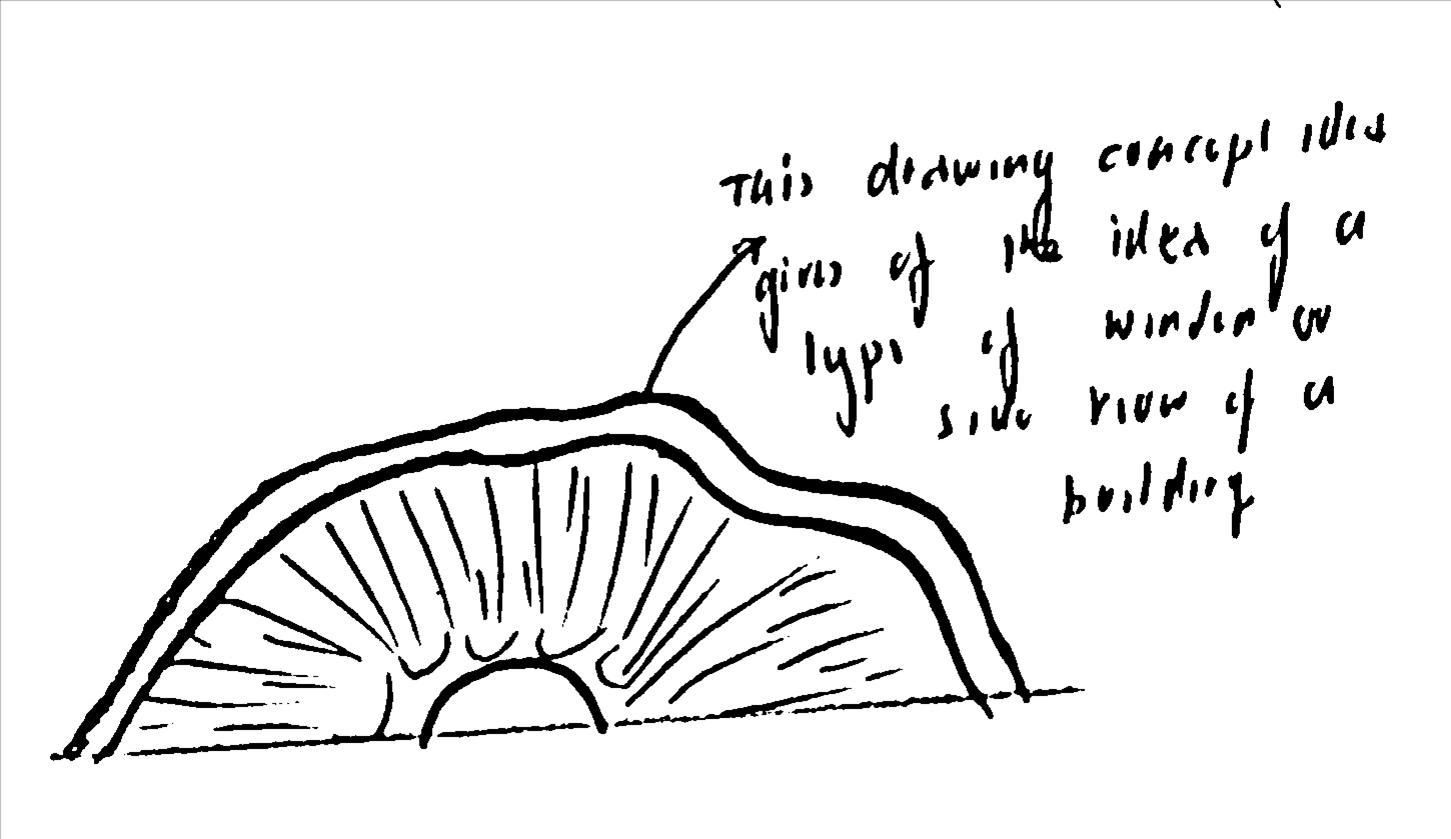 This drawing concept idea
gives of the idea of a
type of window or
side view of a
building